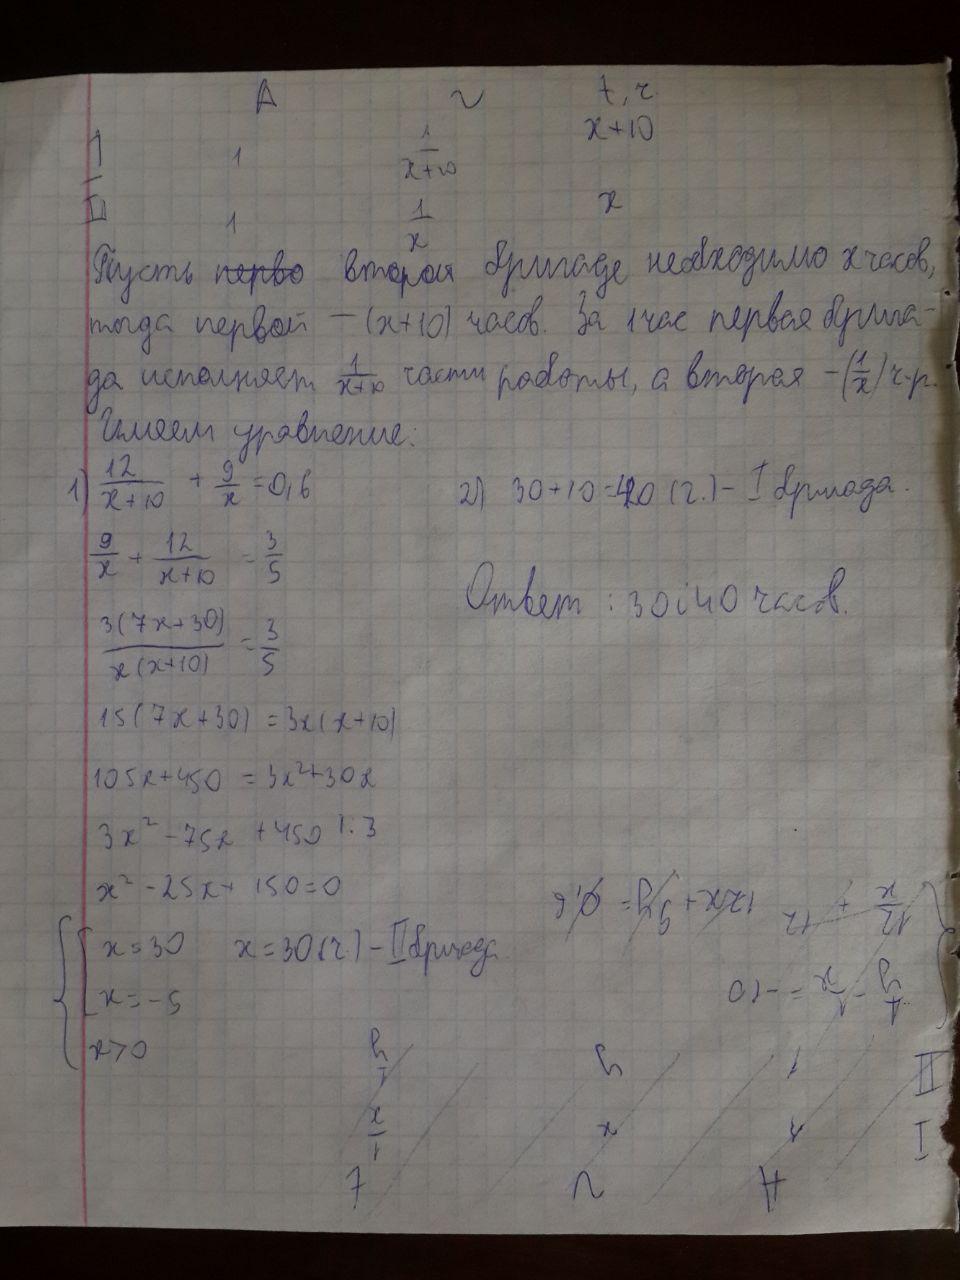 A v t, ч.
I 1 1/(x+10) x+10
II 1 1/x x
Пусть перво второй бригаде необходимо x часов,
тогда первой – (x+10) часов. За 1 час первая брига-
да исполняет 1/(x+10) части работы, а вторая – (1/x) ч.р.
Имеем уравнение:
1) 12/(x+10) + 9/x = 0,6
9/x + 12/(x+10) = 3/5
3(7x+30)/(x(x+10)) = 3/5
15(7x+30) = 3x(x+10)
105x+450 = 3x²+30x
3x² - 75x + 450 |:3
x² - 25x + 150 = 0
x = 30 x = 30 (ч.) – II бригада
x = -5
x > 0
2) 30+10=40 (ч.) – I бригада.
Ответ: 30 і 40 часов.
A v t
I 1 x 1/x
II 1 y 1/y
12x + 9y = 0,6